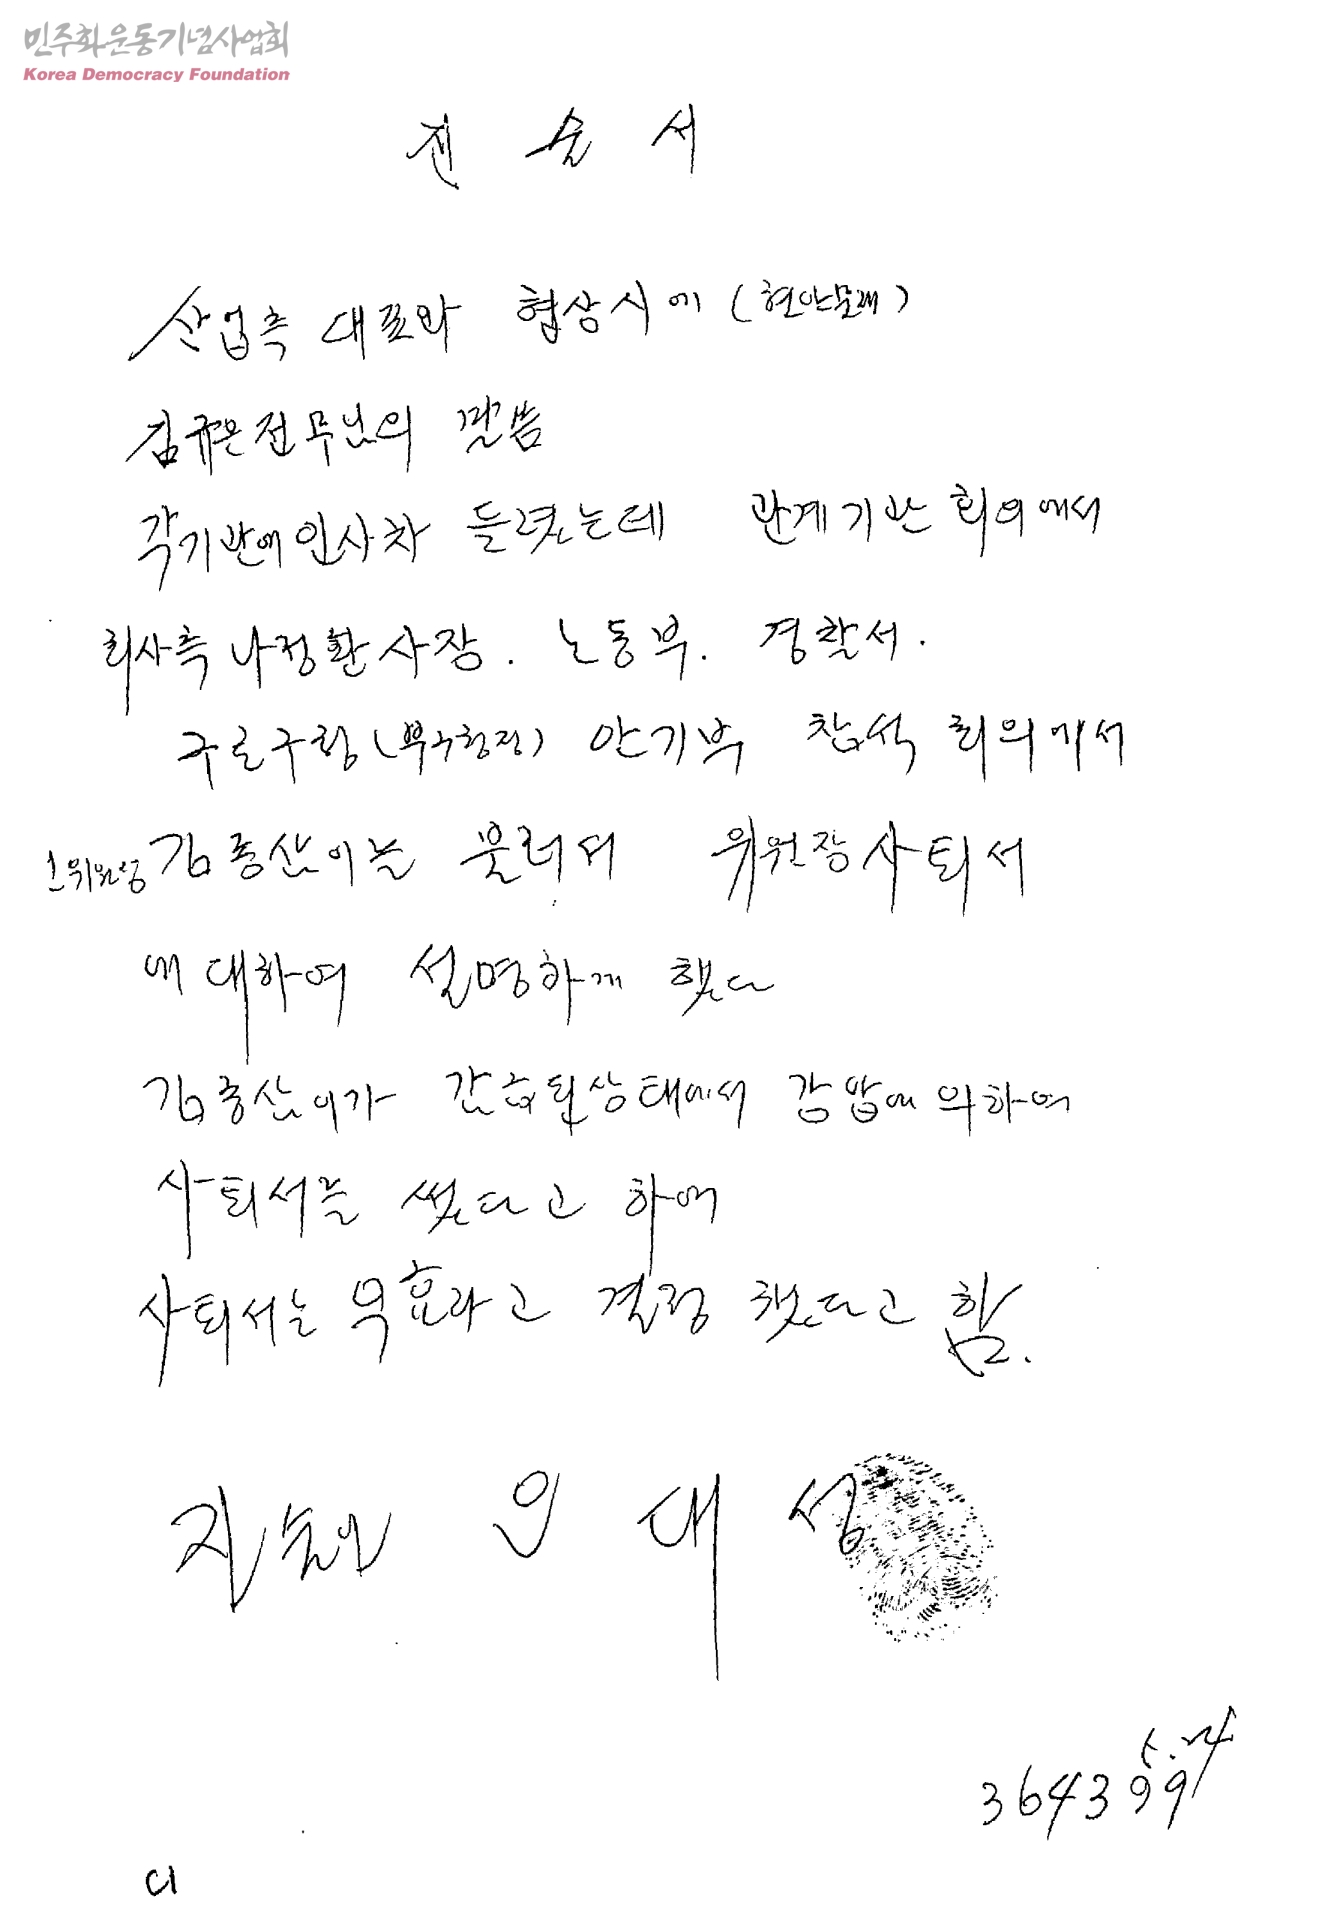 민주화운동기념사업회
Korea Democracy Foundation
진 술 서
산업측 대표와 협상시에 (현안문제)
김규은전무님의 말씀
각기관에인사차 들렸는데 관계기관 회의에서
회사측 나정환사장. 노동부. 경찰서.
구로구청(부구청장) 안기부 참석 회의에서
김종삼이는 불러서 위원장사퇴서
에대하여 설명하게 했다
김종삼이가 감금된상태에서 강압에의하여
사퇴서를 썼다고 하여
사퇴서는 무효라고 결정 했다고 함.
진술인 우 대 성
5.24
3643997